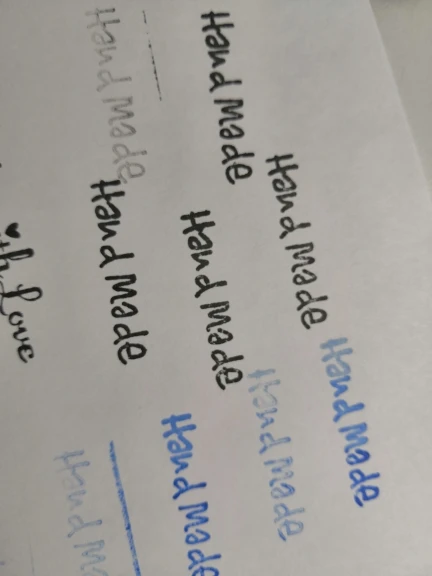 Hand Made
Hand Made
Hand Made
Hand Made
Hand Made
Hand Made
Hand Made
Hand Made
Hand Ma
ith Love